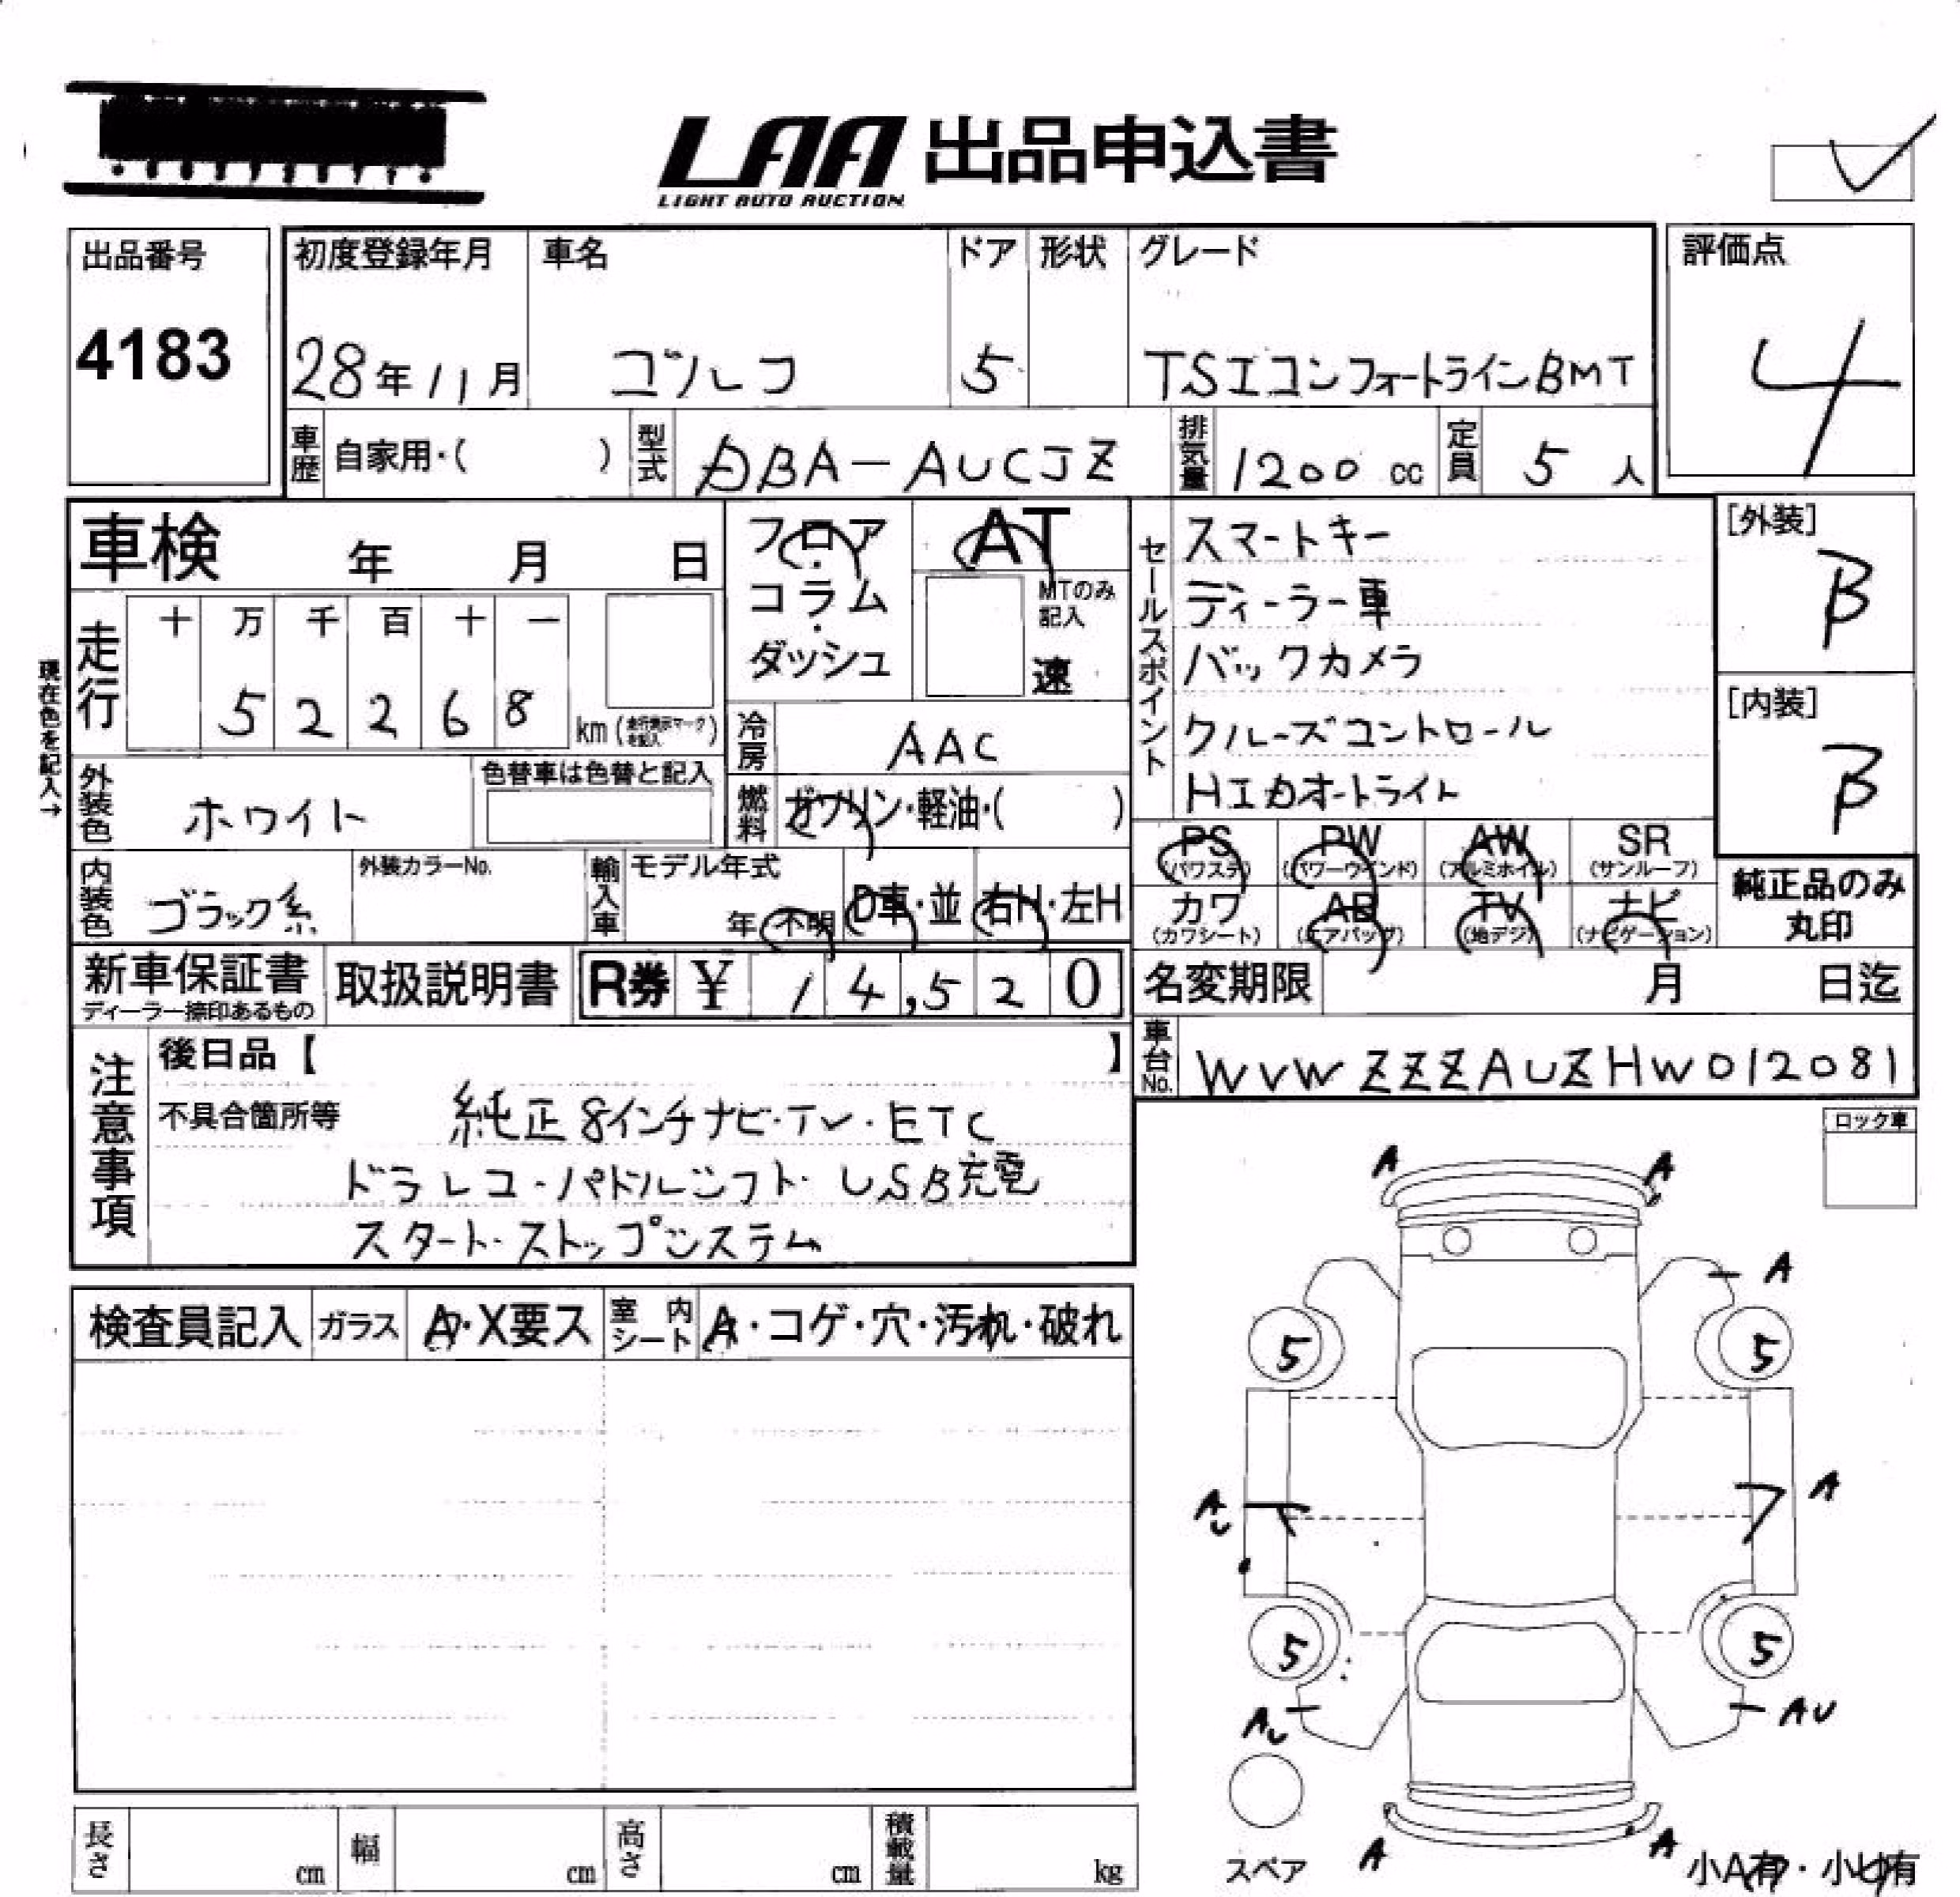 LAA 出品申込書
LIGHT AUTO AUCTION
出品番号
4183
初度登録年月 車名 ドア 形状 グレード
28年11月 ゴルフ 5 TSIコンフォートラインBMT
評価点
4
車歴 自家用・( ) 型式 DBA-AUCJZ 排気量 1200 cc 定員 5 人
車検 年 月 日
フロア・コラム・ダッシュ
AT
MTのみ記入
速
現在色を記入→
走行 十 万 千 百 十 一
5 2 2 6 8 km (走行表示マークを記入)
冷房 AAC
外装色 ホワイト 色替車は色替と記入
燃料 ガソリン・軽油・( )
内装色 ブラック系 外装カラーNo. 輸入車 モデル年式 年 不明 D車・並 右H・左H
セールスポイント
スマートキー
ディーラー車
バックカメラ
クルーズコントロール
HIDオートライト
[外装]
B
[内装]
B
PS (パワステ) PW (パワーウインド) AW (アルミホイル) SR (サンルーフ)
カワ (カワシート) AB (エアバッグ) TV (地デジ) ナビ (ナビゲーション)
純正品のみ丸印
新車保証書 ディーラー捺印あるもの 取扱説明書 R券 ¥ 14,520
名変期限 月 日迄
車台No. WVWZZZAUZHW012081
注意事項
後日品【 】
不具合箇所等 純正8インチナビ・TV・ETC
ドラレコ・パドルシフト・USB充電
スタート・ストップシステム
ロック車
検査員記入 ガラス A・X要ス 室内シート A・コゲ・穴・汚れ・破れ
A A
A
5 5
AU A
5 5
AU AU
スペア A A
小A有・小U有
長さ cm 幅 cm 高さ cm 積載量 kg